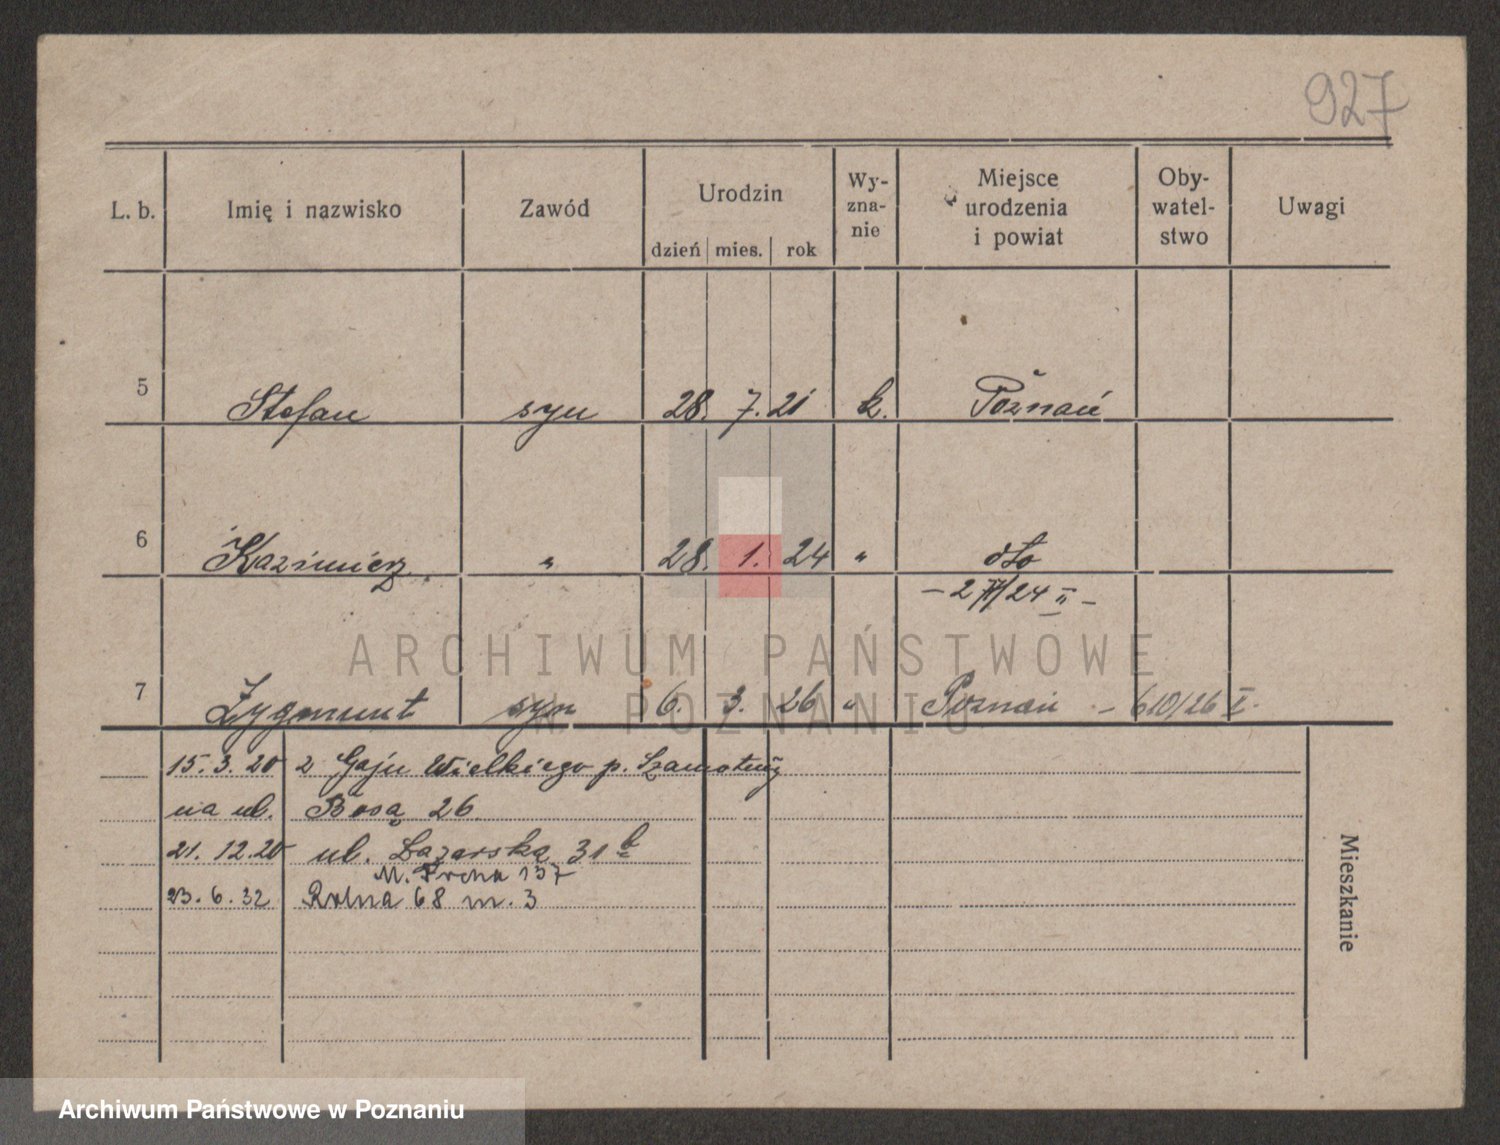 927
L. b. Imię i nazwisko Zawód Urodzin dzień mies. rok Wy-zna-nie Miejsce urodzenia i powiat Oby-watel-stwo Uwagi
5 Stefan syn 28. 7. 21 k. Poznań
6 Kazimierz " 28. 1. 24 " dto
ARCHIWUM PAŃSTWOWE
7 Zygmunt syn 6. 3. 26 " Poznań - 610/26 I.
W POZNANIU
15.3.20 z Gaju Wielkiego p. Szamotuły
na ul. Bosą 26
21. 12.20 ul. Łazarska 31
137
23.6.32 Rolna 68 m. 3
Mieszkanie
Archiwum Państwowe w Poznaniu